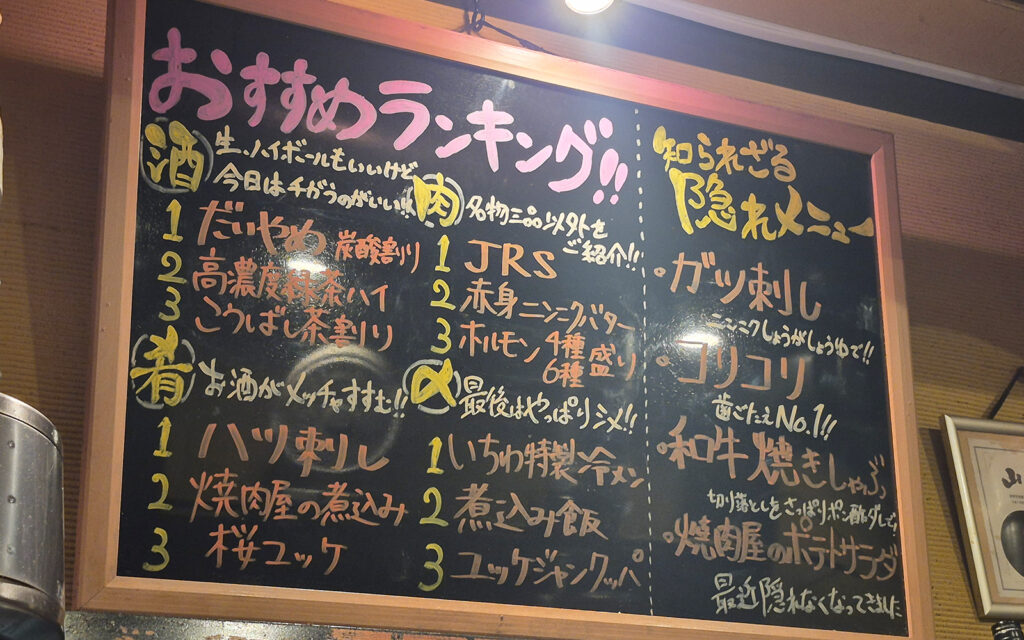 おすすめランキング!!
酒
生、ハイボールもいいけど
今日はチガうのがいい!!
1 だいやめ 炭酸割り
2 高濃度緑茶ハイ
3 こうばし茶割り
肴
お酒がメッチャすすむ!!
1 ハツ刺し
2 焼肉屋の煮込み
3 桜ユッケ
肉
名物三品以外を
ご紹介!!
1 JRS
2 赤身ニンニクバター
3 ホルモン 4種 6種 盛り
〆
最後はやっぱりシメ!!
1 いちわ特製冷メン
2 煮込み飯
3 ユッケジャンクッパ
知られざる
隠れメニュー
・ガツ刺し
ニンニクしょうがしょうゆで!!
・コリコリ
歯ごたえNo.1!!
・和牛焼きしゃぶ
切り落としをさっぱりポン酢ダレで!
・焼肉屋のポテトサラダ
最近隠れなくなってきました
山